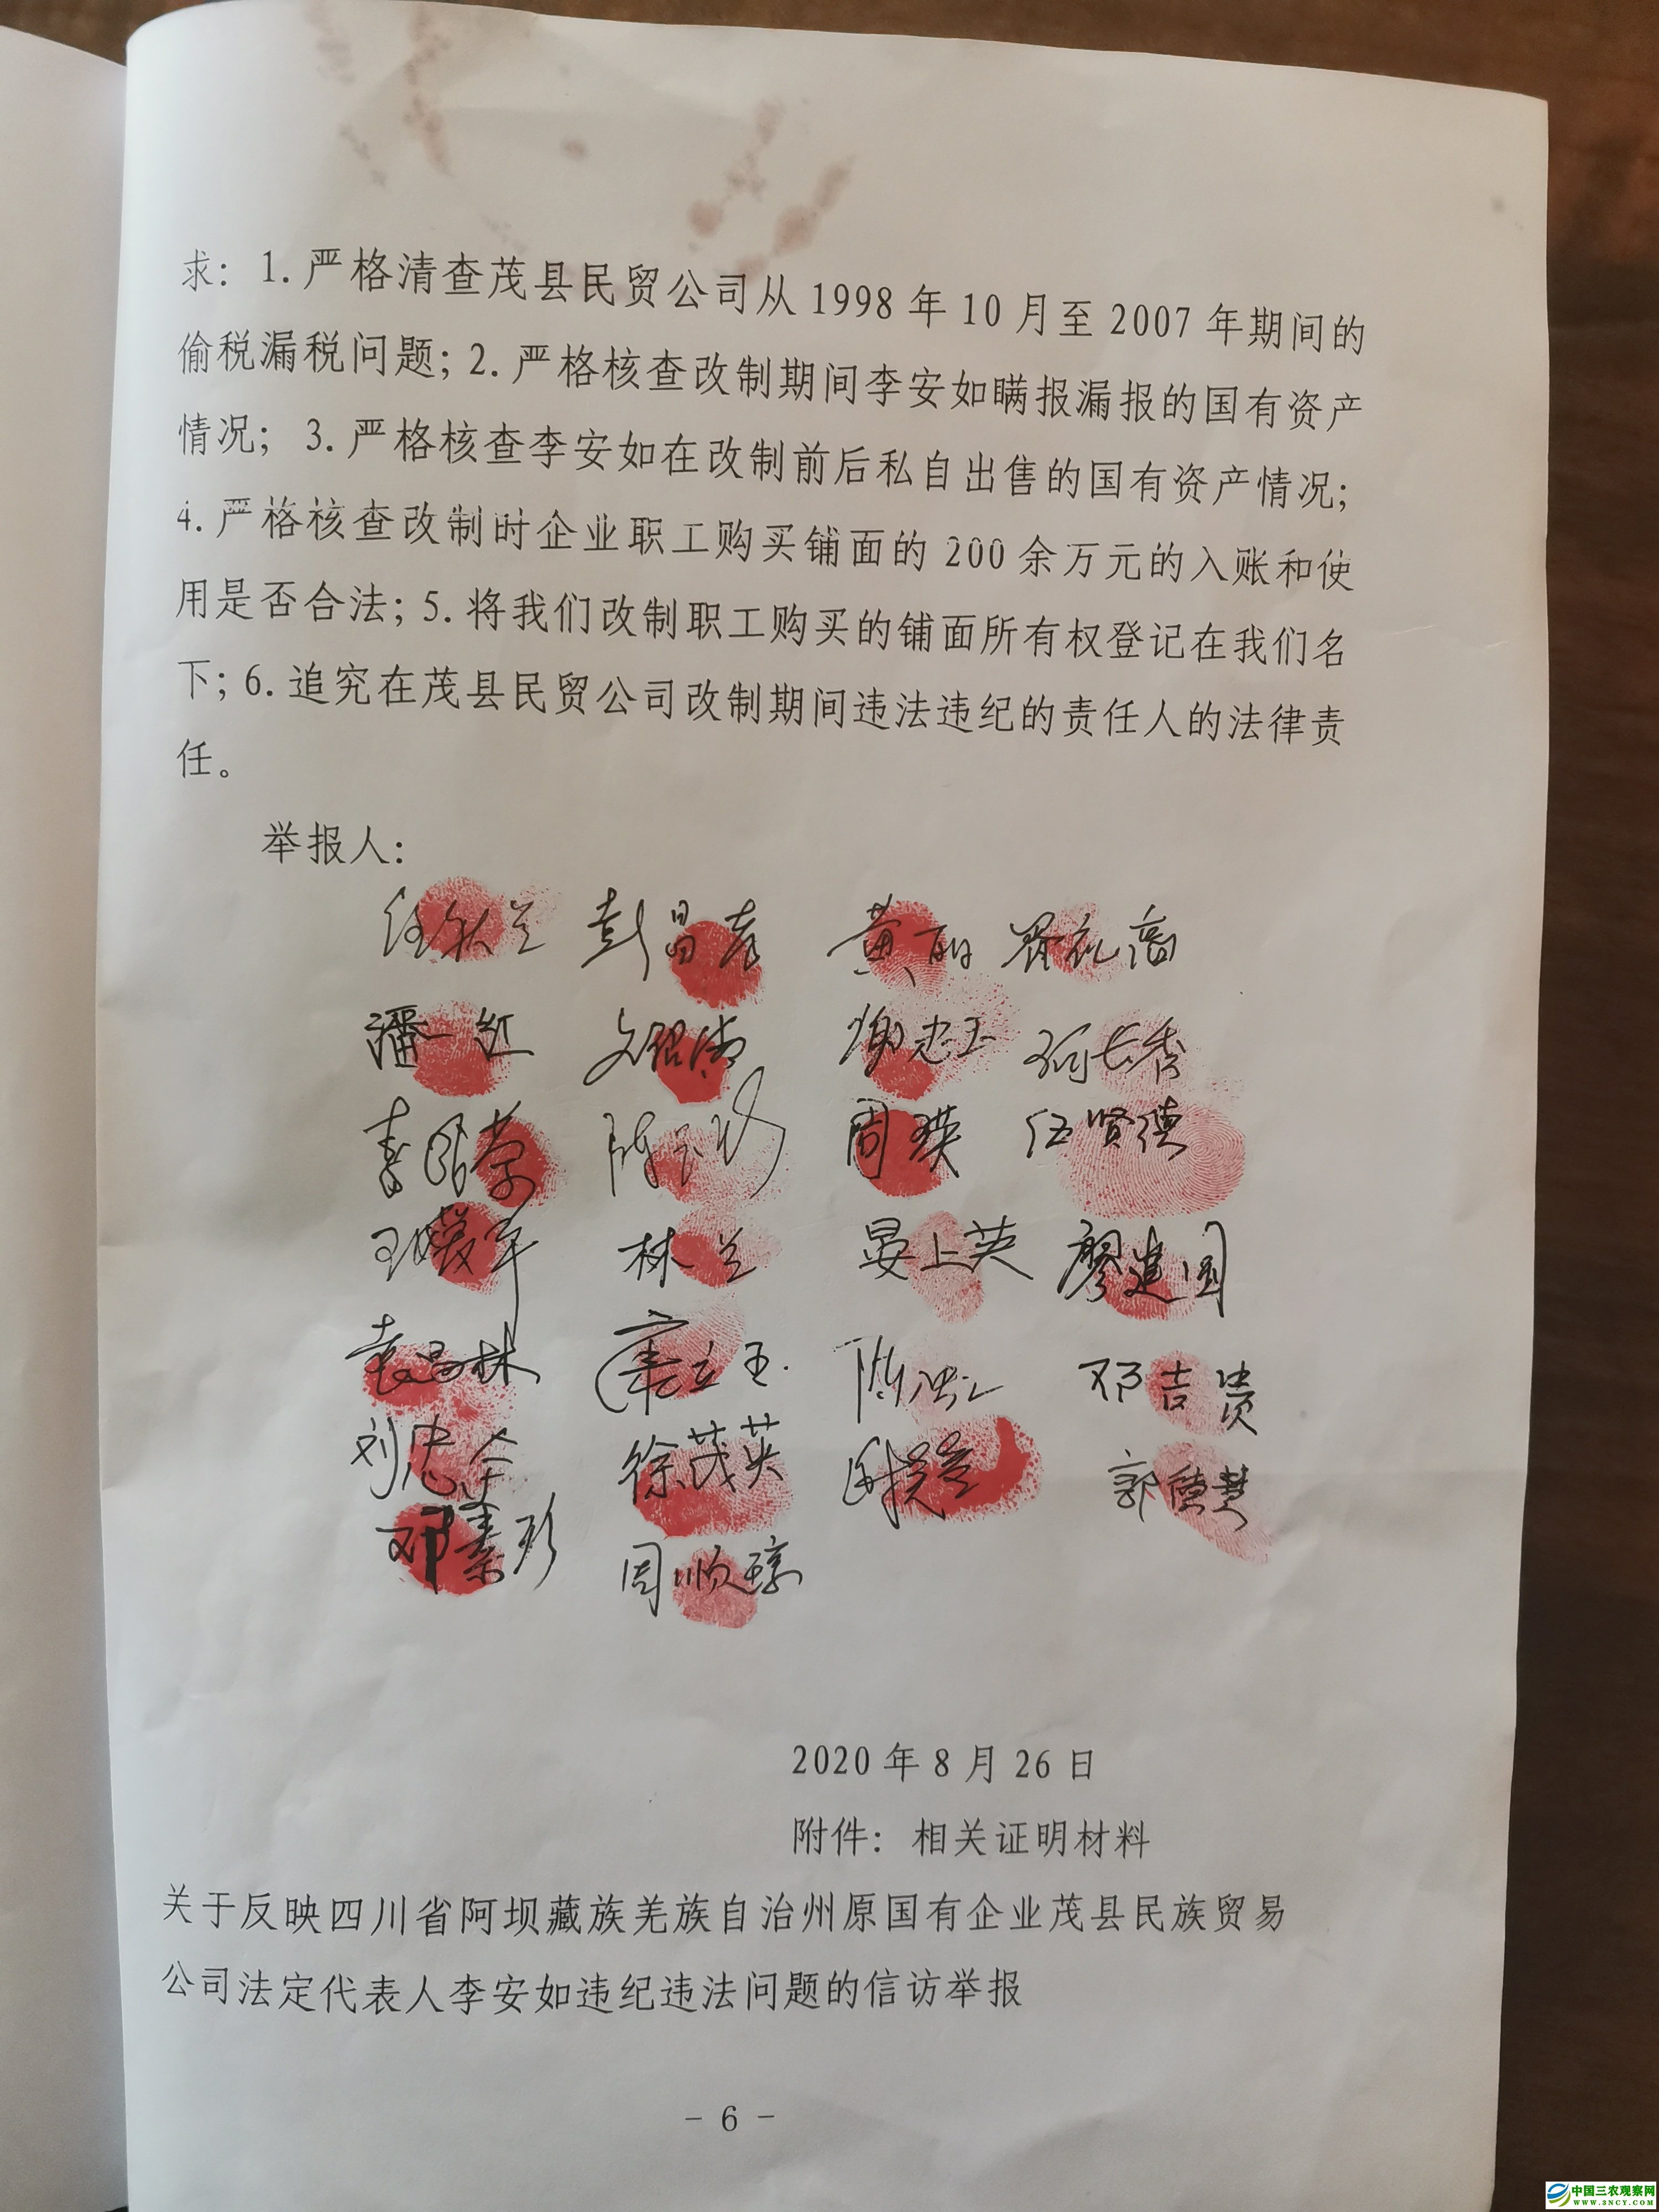 求：1.严格清查茂县民贸公司从1998年10月至2007年期间的
偷税漏税问题；2.严格核查改制期间李安如瞒报漏报的国有资产
情况；3.严格核查李安如在改制前后私自出售的国有资产情况；
4.严格核查改制时企业职工购买铺面的200余万元的入账和使
用是否合法；5.将我们改制职工购买的铺面所有权登记在我们名
下；6.追究在茂县民贸公司改制期间违法违纪的责任人的法律责
任。
举报人：
任秋兰 黄丽
潘红 谢忠玉 何长香
周瑛 伍贤德
林兰 晏上英 廖建国
袁昌林 唐立玉 邓吉贵
刘忠全 徐茂英 郭德慧
邓素珍 周顺琼
2020年8月26日
附件：相关证明材料
关于反映四川省阿坝藏族羌族自治州原国有企业茂县民族贸易
公司法定代表人李安如违纪违法问题的信访举报
- 6 -
中国三农观察网
WWW.3NCY.COM